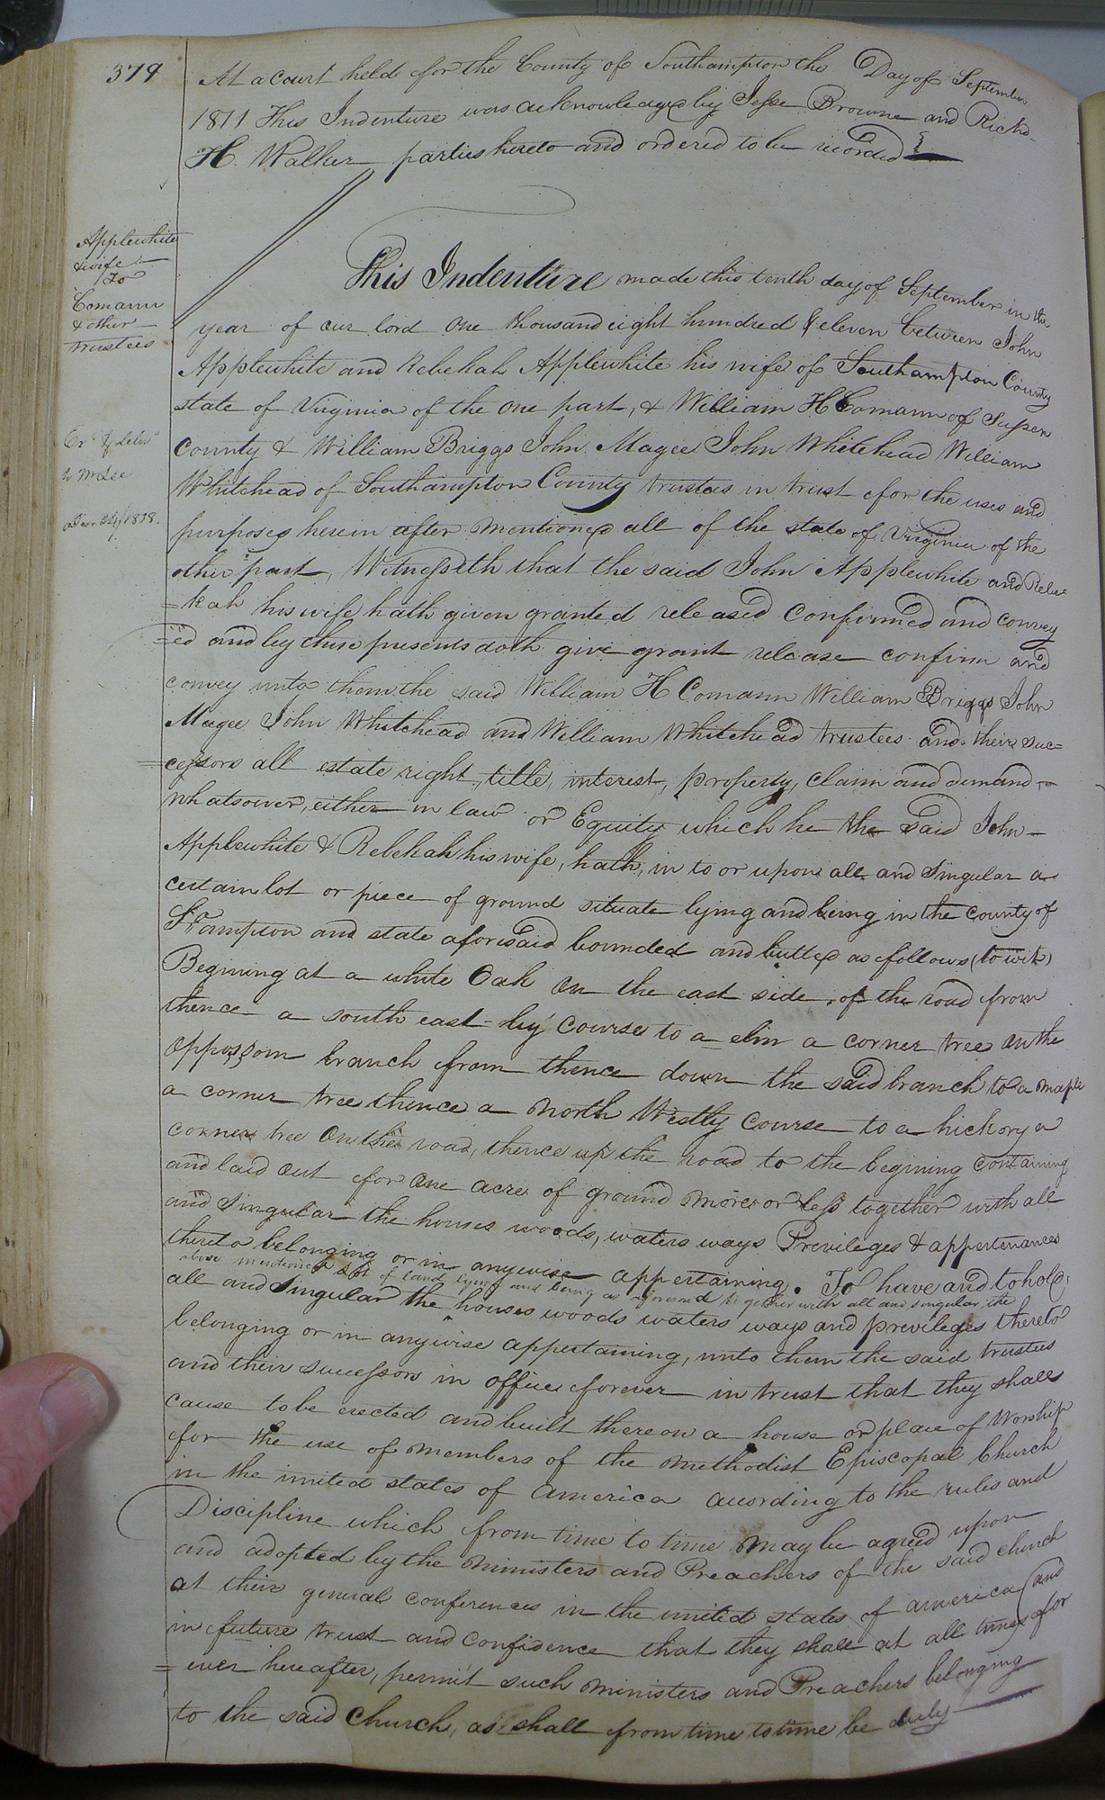 379
At a court held for the County of Southampton the Day of September
1811 This Indenture was acknowledged by Jesse Browne and Richd
H. Walker parties hereto and ordered to be recorded
Applewhite
& wife
To
Comann
& other
trustees
This Indenture made this tenth day of September in the
year of our lord one thousand eight hundred & eleven between John
Applewhite and Rebekah Applewhite his wife of Southampton County
state of Virginia of the one part, & William H Comann of Sussex
County & William Briggs John Magee John Whitehead William
Whitehead of Southampton County trustees in trust for the uses and
purposes herein after mentioned all of the state of Virginia of the
other part, Witnesseth that the said John Applewhite and Rebe
=kah his wife hath given granted released confirmed and convey
=ed and by these presents doth give grant release confirm and
convey unto them the said William H Comann William Briggs John
Magee John Whitehead and William Whitehead trustees and their suc=
=cessors all estate right, title, interest, property, claim and demand
whatsover, either in law or Equity which he the said John
Applewhite & Rebekah his wife, hath, in to or upon all and Singular a
certain lot or piece of ground situate lying and being in the County of
S:hampton and state aforesaid bounded and butted as follows (to wit)
Begining at a white Oak on the east side of the road from
thence a south east-ly course to a elm a corner tree on the
oppossom branch from thence down the said branch to a maple
a corner tree thence a North Westly course to a hickory a
corner tree on the road, thence up the road to the begining containing
and laid out for one acre of ground more or less together with all
and Singular the houses woods, waters ways Previleges & appertenances
thereto belonging or in anywise appertaining. To have and to hold
above mentioned lot of land lying and being as aforesaid together with all and singular the
all and Singular the houses woods waters ways and previleges thereto
belonging or in anywise appertaining, unto them the said trustees
and their successors in office forever in trust that they shall
cause to be erected and built thereon a house or place of Worship
for the use of members of the Methodist Episcopal Church
in the united states of America according to the rules and
Discipline which from time to time may be agreed upon
and adopted by the ministers and Preachers of the said church
at their general conferences in the united states of america (and
in future trust and confidence that they shall at all times for
=ever hereafter, permit such ministers and Preachers belonging
to the said Church, as shall from time to time be duly